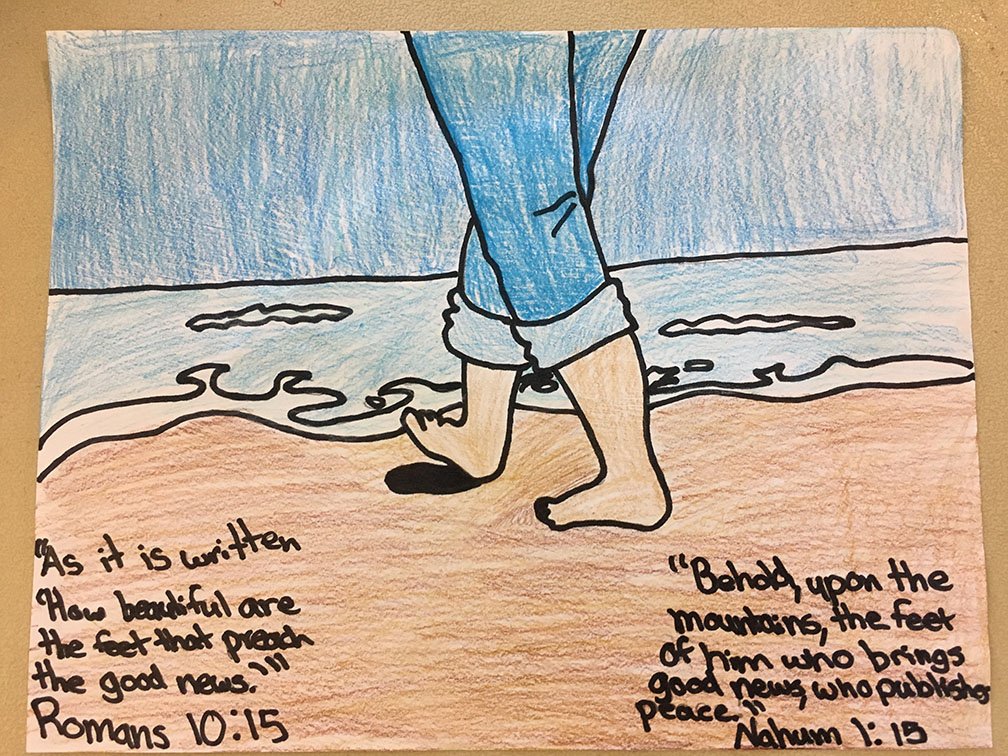 "As it is written
"How beautiful are
the feet that preach
the good news.'"
Romans 10:15
"Behold, upon the
mountains, the feet
of him who brings
good news, who publishes
peace."
Nahum 1:15